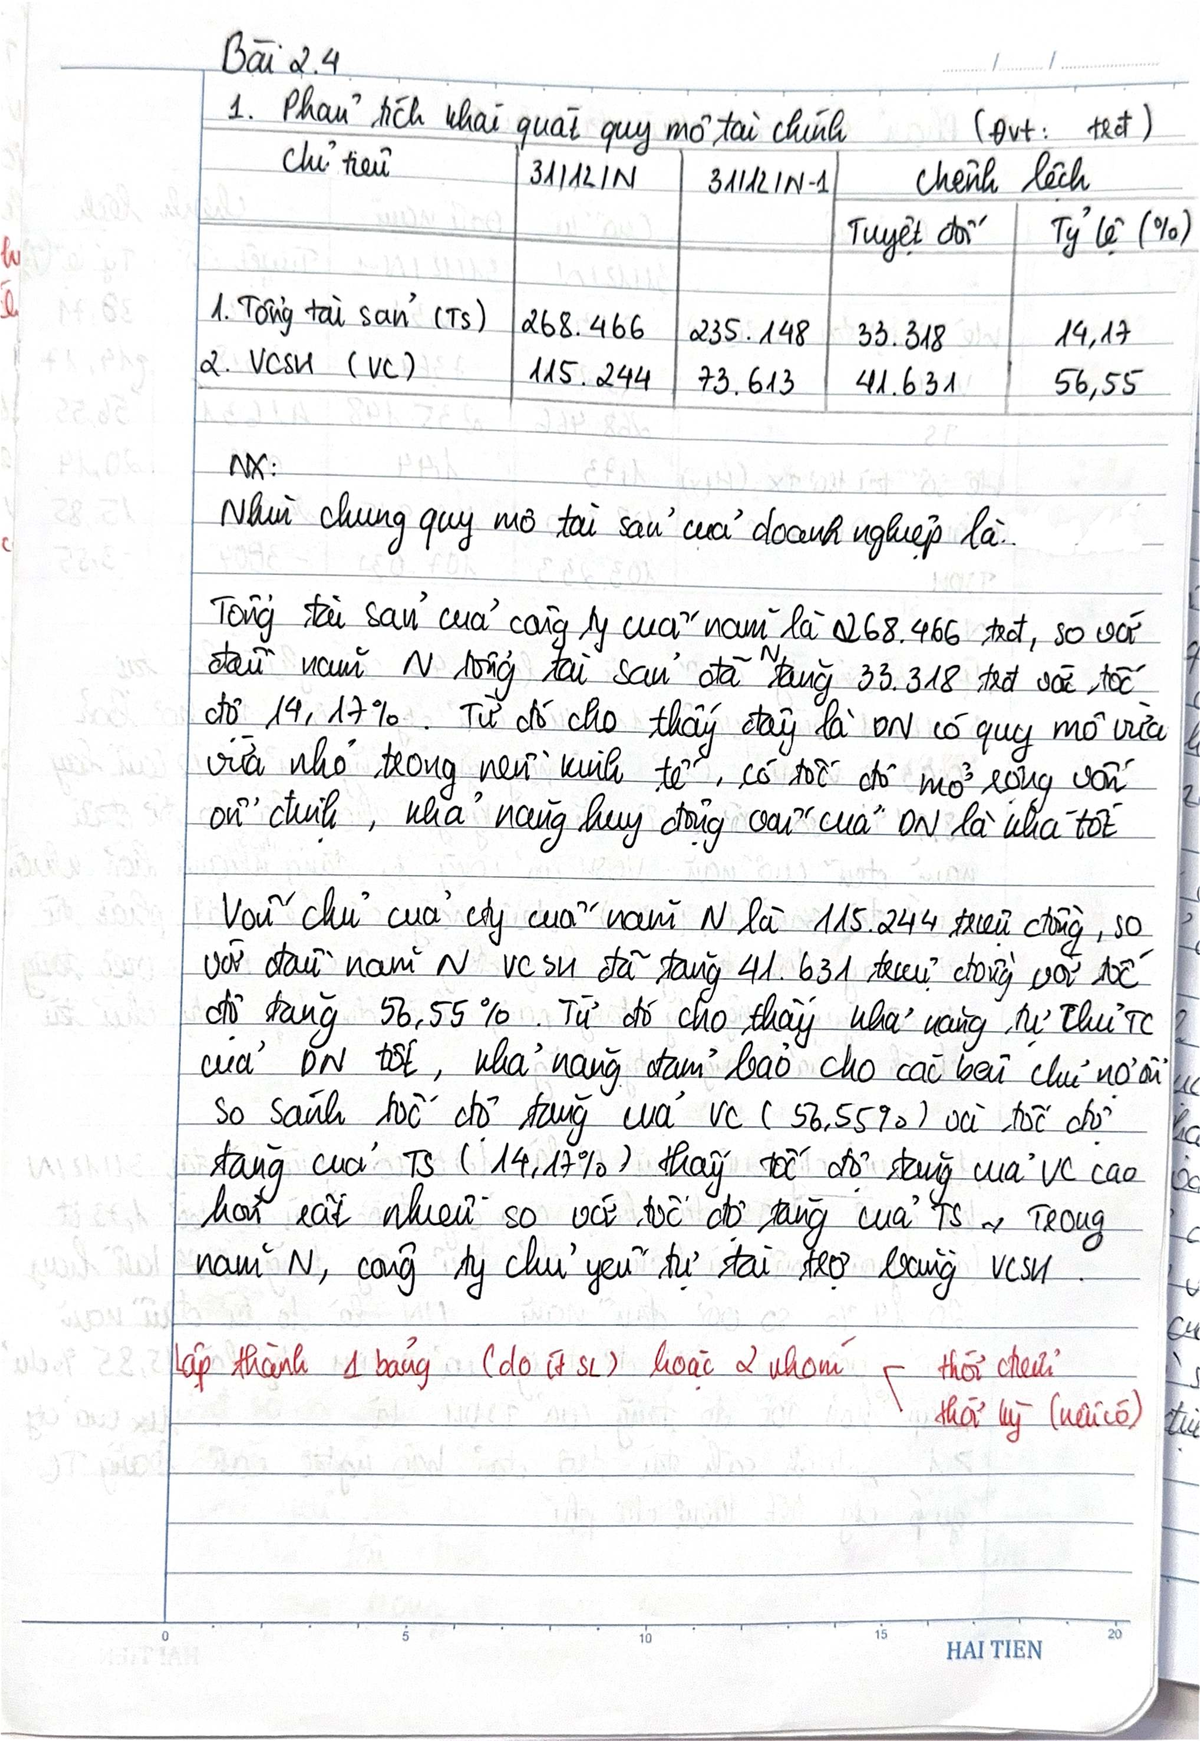 Bài 2.4
1. Phân tích khái quát quy mô tài chính (Đvt: trđ)
Chỉ tiêu 31/12/N 31/12/N-1 Chênh lệch
Tuyệt đối Tỷ lệ (%)
1. Tổng tài sản (TS) 268.466 235.148 33.318 14,17
2. VCSH (VC) 115.244 73.613 41.631 56,55
NX:
Nhìn chung quy mô tài sản của doanh nghiệp là..
Tổng tài sản của công ty cuối năm là 268.466 trđ, so với
N
đầu năm N tổng tài sản đã tăng 33.318 trđ với tốc
độ 14,17%. Từ đó cho thấy đây là DN có quy mô vừa
vừa nhỏ trong nền kinh tế, có tốc độ mở rộng vốn
ổn định, khả năng huy động vốn của DN là khá tốt
Vốn chủ của cty cuối năm N là 115.244 triệu đồng, so
với đầu năm N VCSH đã tăng 41.631 triệu đồng với tốc
độ tăng 56,55%. Từ đó cho thấy khả năng tự chủ TC
của DN tốt, khả năng đảm bảo cho các bên chủ nợ
so sánh tốc độ tăng của VC (56,55%) và tốc độ
tăng của TS (14,17%) thấy tốc độ tăng của VC cao
hơn rất nhiều so với tốc độ tăng của TS → Trong
năm N, công ty chủ yếu tự tài trợ bằng VCSH.
Lập thành 1 bảng (do ít SL) hoặc 2 nhóm thời điểm
thời kỳ (nếu có)
0 5 10 15 20
HAI TIEN